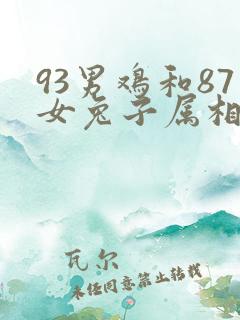 93男鸡和87
女兔子属相
瓦尔
未经同意禁止转载